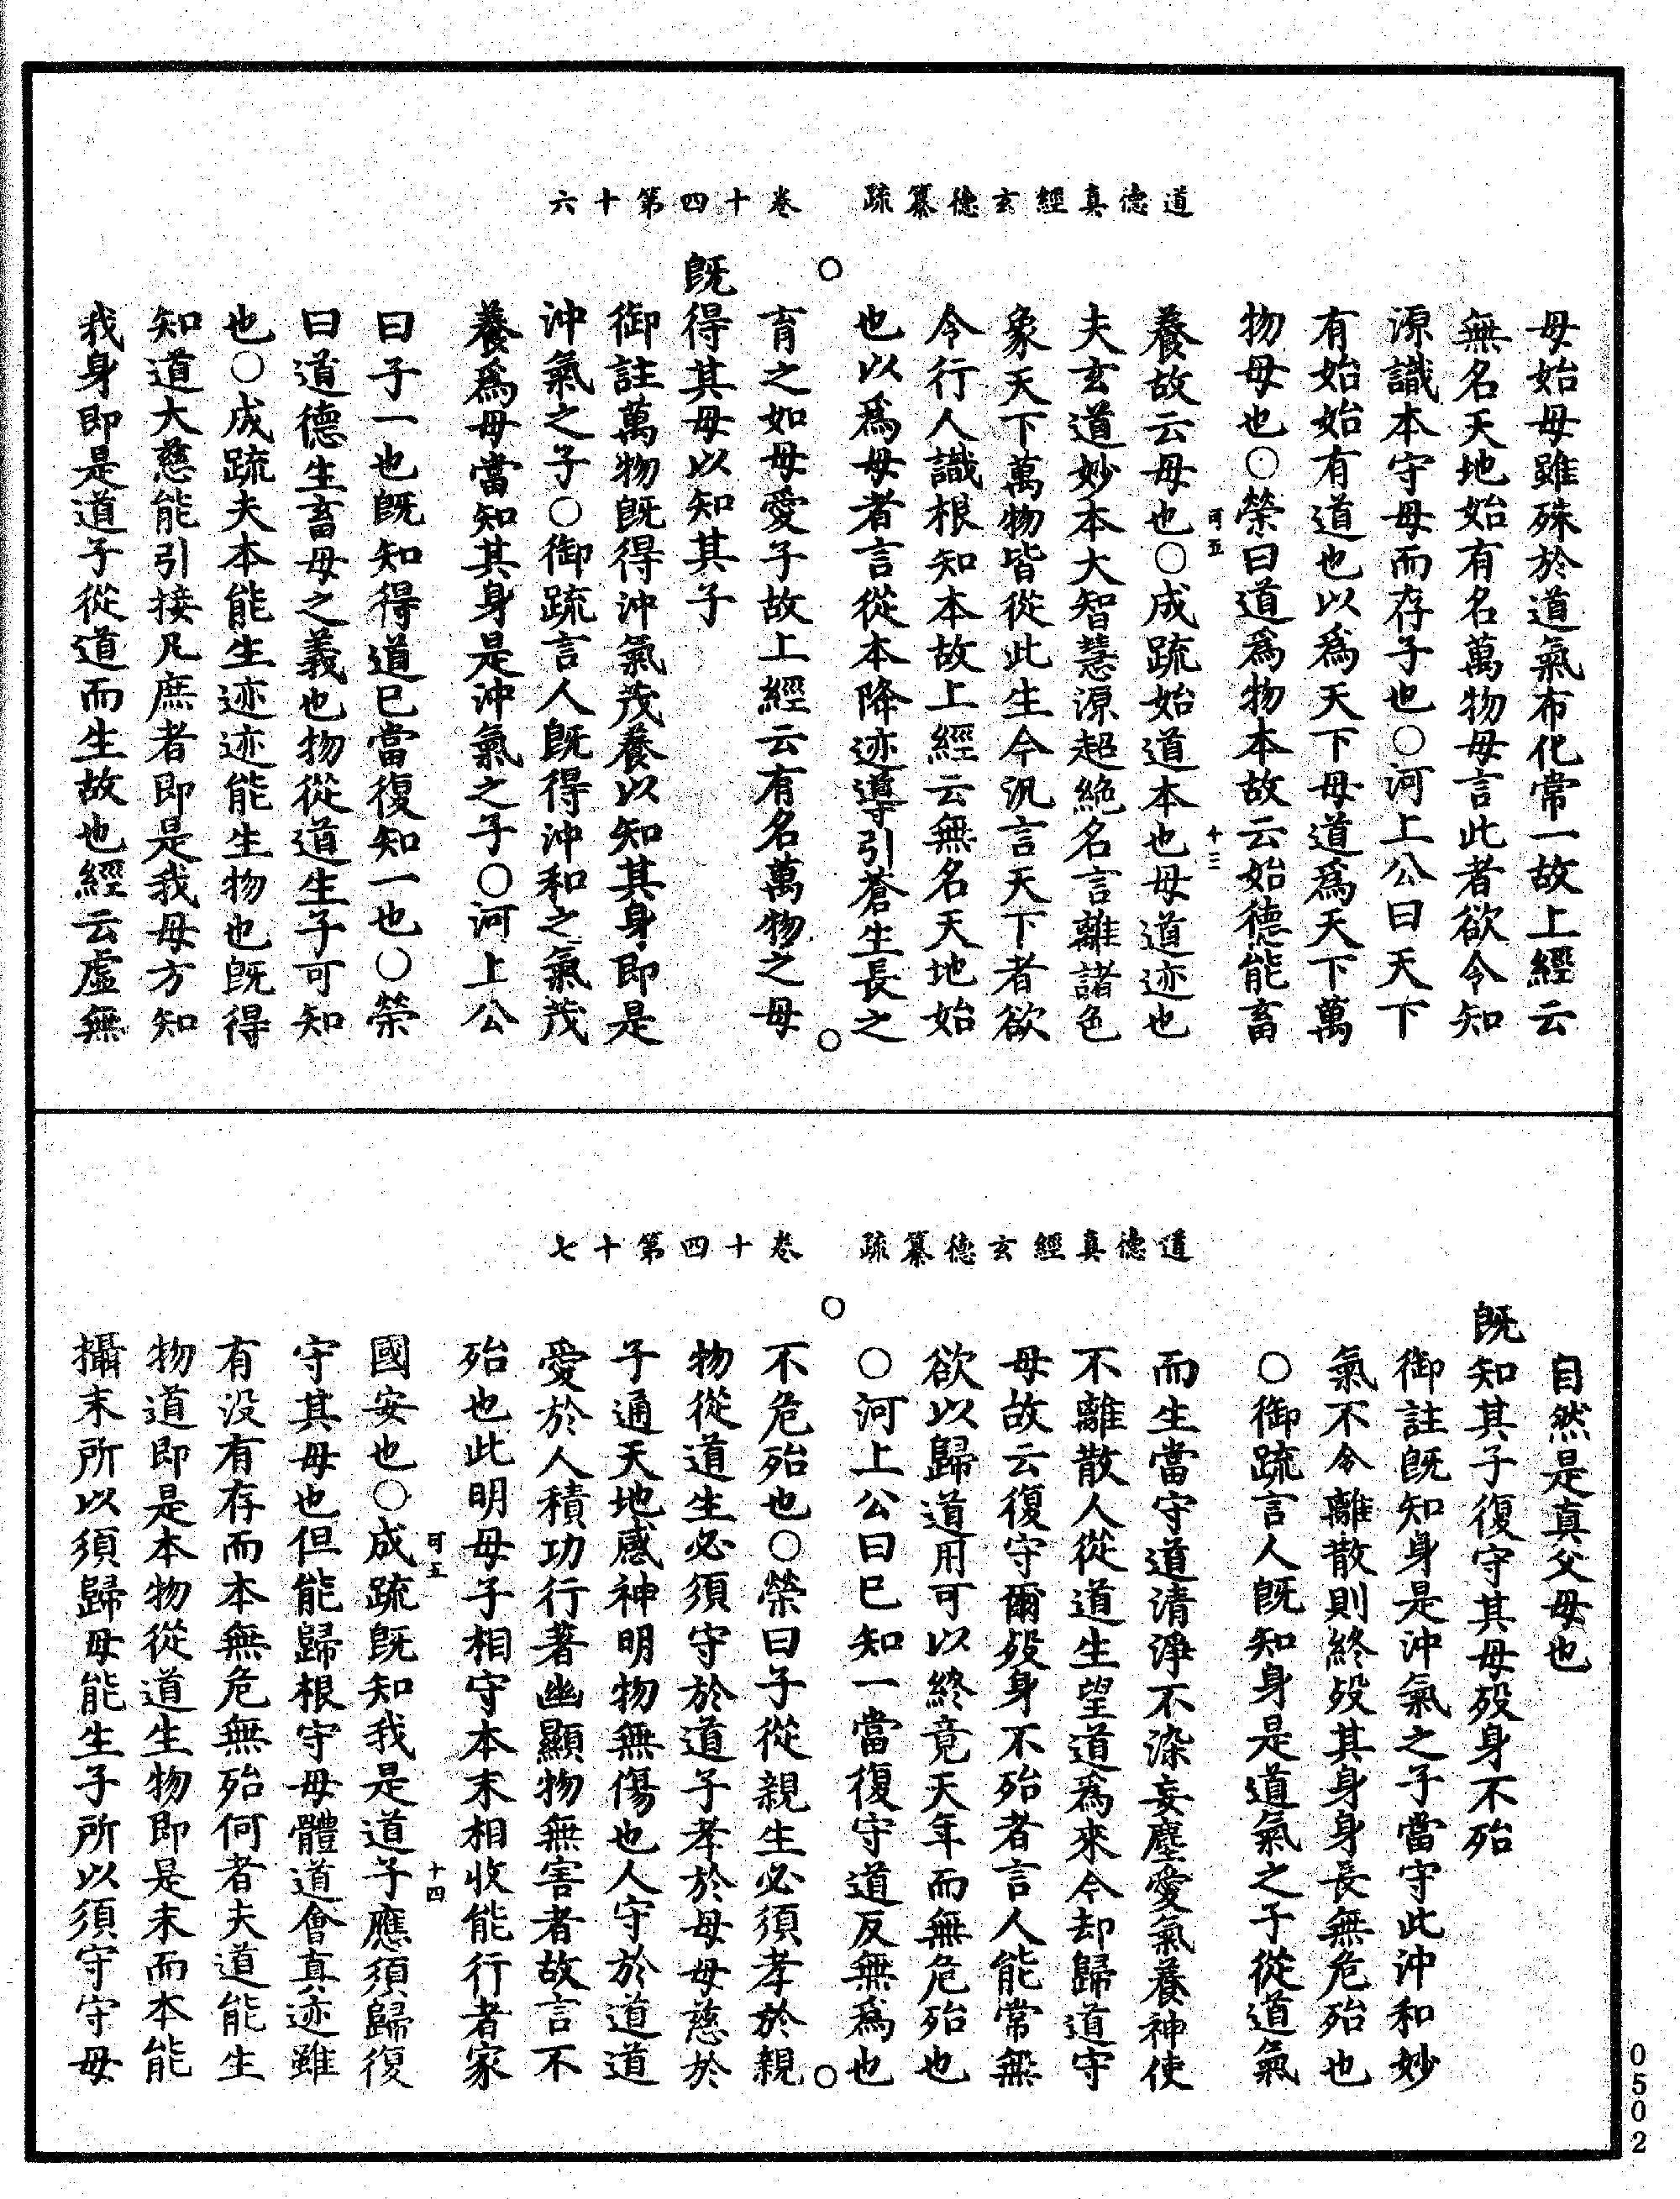 道德真經玄德纂疏　卷十四第十六
母始母雖殊於道氣布化常一故上經云
無名天地始有名萬物母言此者欲令知
源識本守母而存子也○河上公曰天下
有始始有道也以爲天下母道爲天下萬
物母也○榮曰道爲物本故云始德能畜
可五　十三
養故云母也○成疏始道本也母道迹也
夫玄道妙本大智慧源超絶名言離諸色
象天下萬物皆從此生今汎言天下者欲
令行人識根知本故上經云無名天地始
也以爲母者言從本降迹導引蒼生長之
育之如母愛子故上經云有名萬物之母
既得其母以知其子
御註萬物既得沖氣茂養以知其身即是
沖氣之子○御疏言人既得沖和之氣茂
養爲母當知其身是沖氣之子○河上公
曰子一也既知得道已當復知一也○榮
曰道德生畜母之義也物從道生子可知
也○成疏夫本能生迹迹能生物也既得
知道大慈能引接凡庶者即是我母方知
我身即是道子從道而生故也經云虛無
道德真經玄德纂疏　卷十四第十七
自然是真父母也
既知其子復守其母歿身不殆
御註既知身是沖氣之子當守此沖和妙
氣不令離散則終歿其身身長無危殆也
○御疏言人既知身是道氣之子從道氣
而生當守道清淨不染妄塵愛氣養神使
不離散人從道生望道爲來今却歸道守
母故云復守爾歿身不殆者言人能常無
欲以歸道用可以終竟天年而無危殆也
○河上公曰已知一當復守道反無爲也
不危殆也○榮曰子從親生必須孝於親
物從道生必須守於道子孝於母母慈於
子通天地感神明物無傷也人守於道道
愛於人積功行著幽顯物無害者故言不
殆也此明母子相守本末相收能行者家
可五　十四
國安也○成疏既知我是道子應須歸復
守其母也但能歸根守母體道會真迹雖
有没有存而本無危無殆何者夫道能生
物道即是本物從道生物即是末而本能
攝末所以須歸母能生子所以須守守母
0502